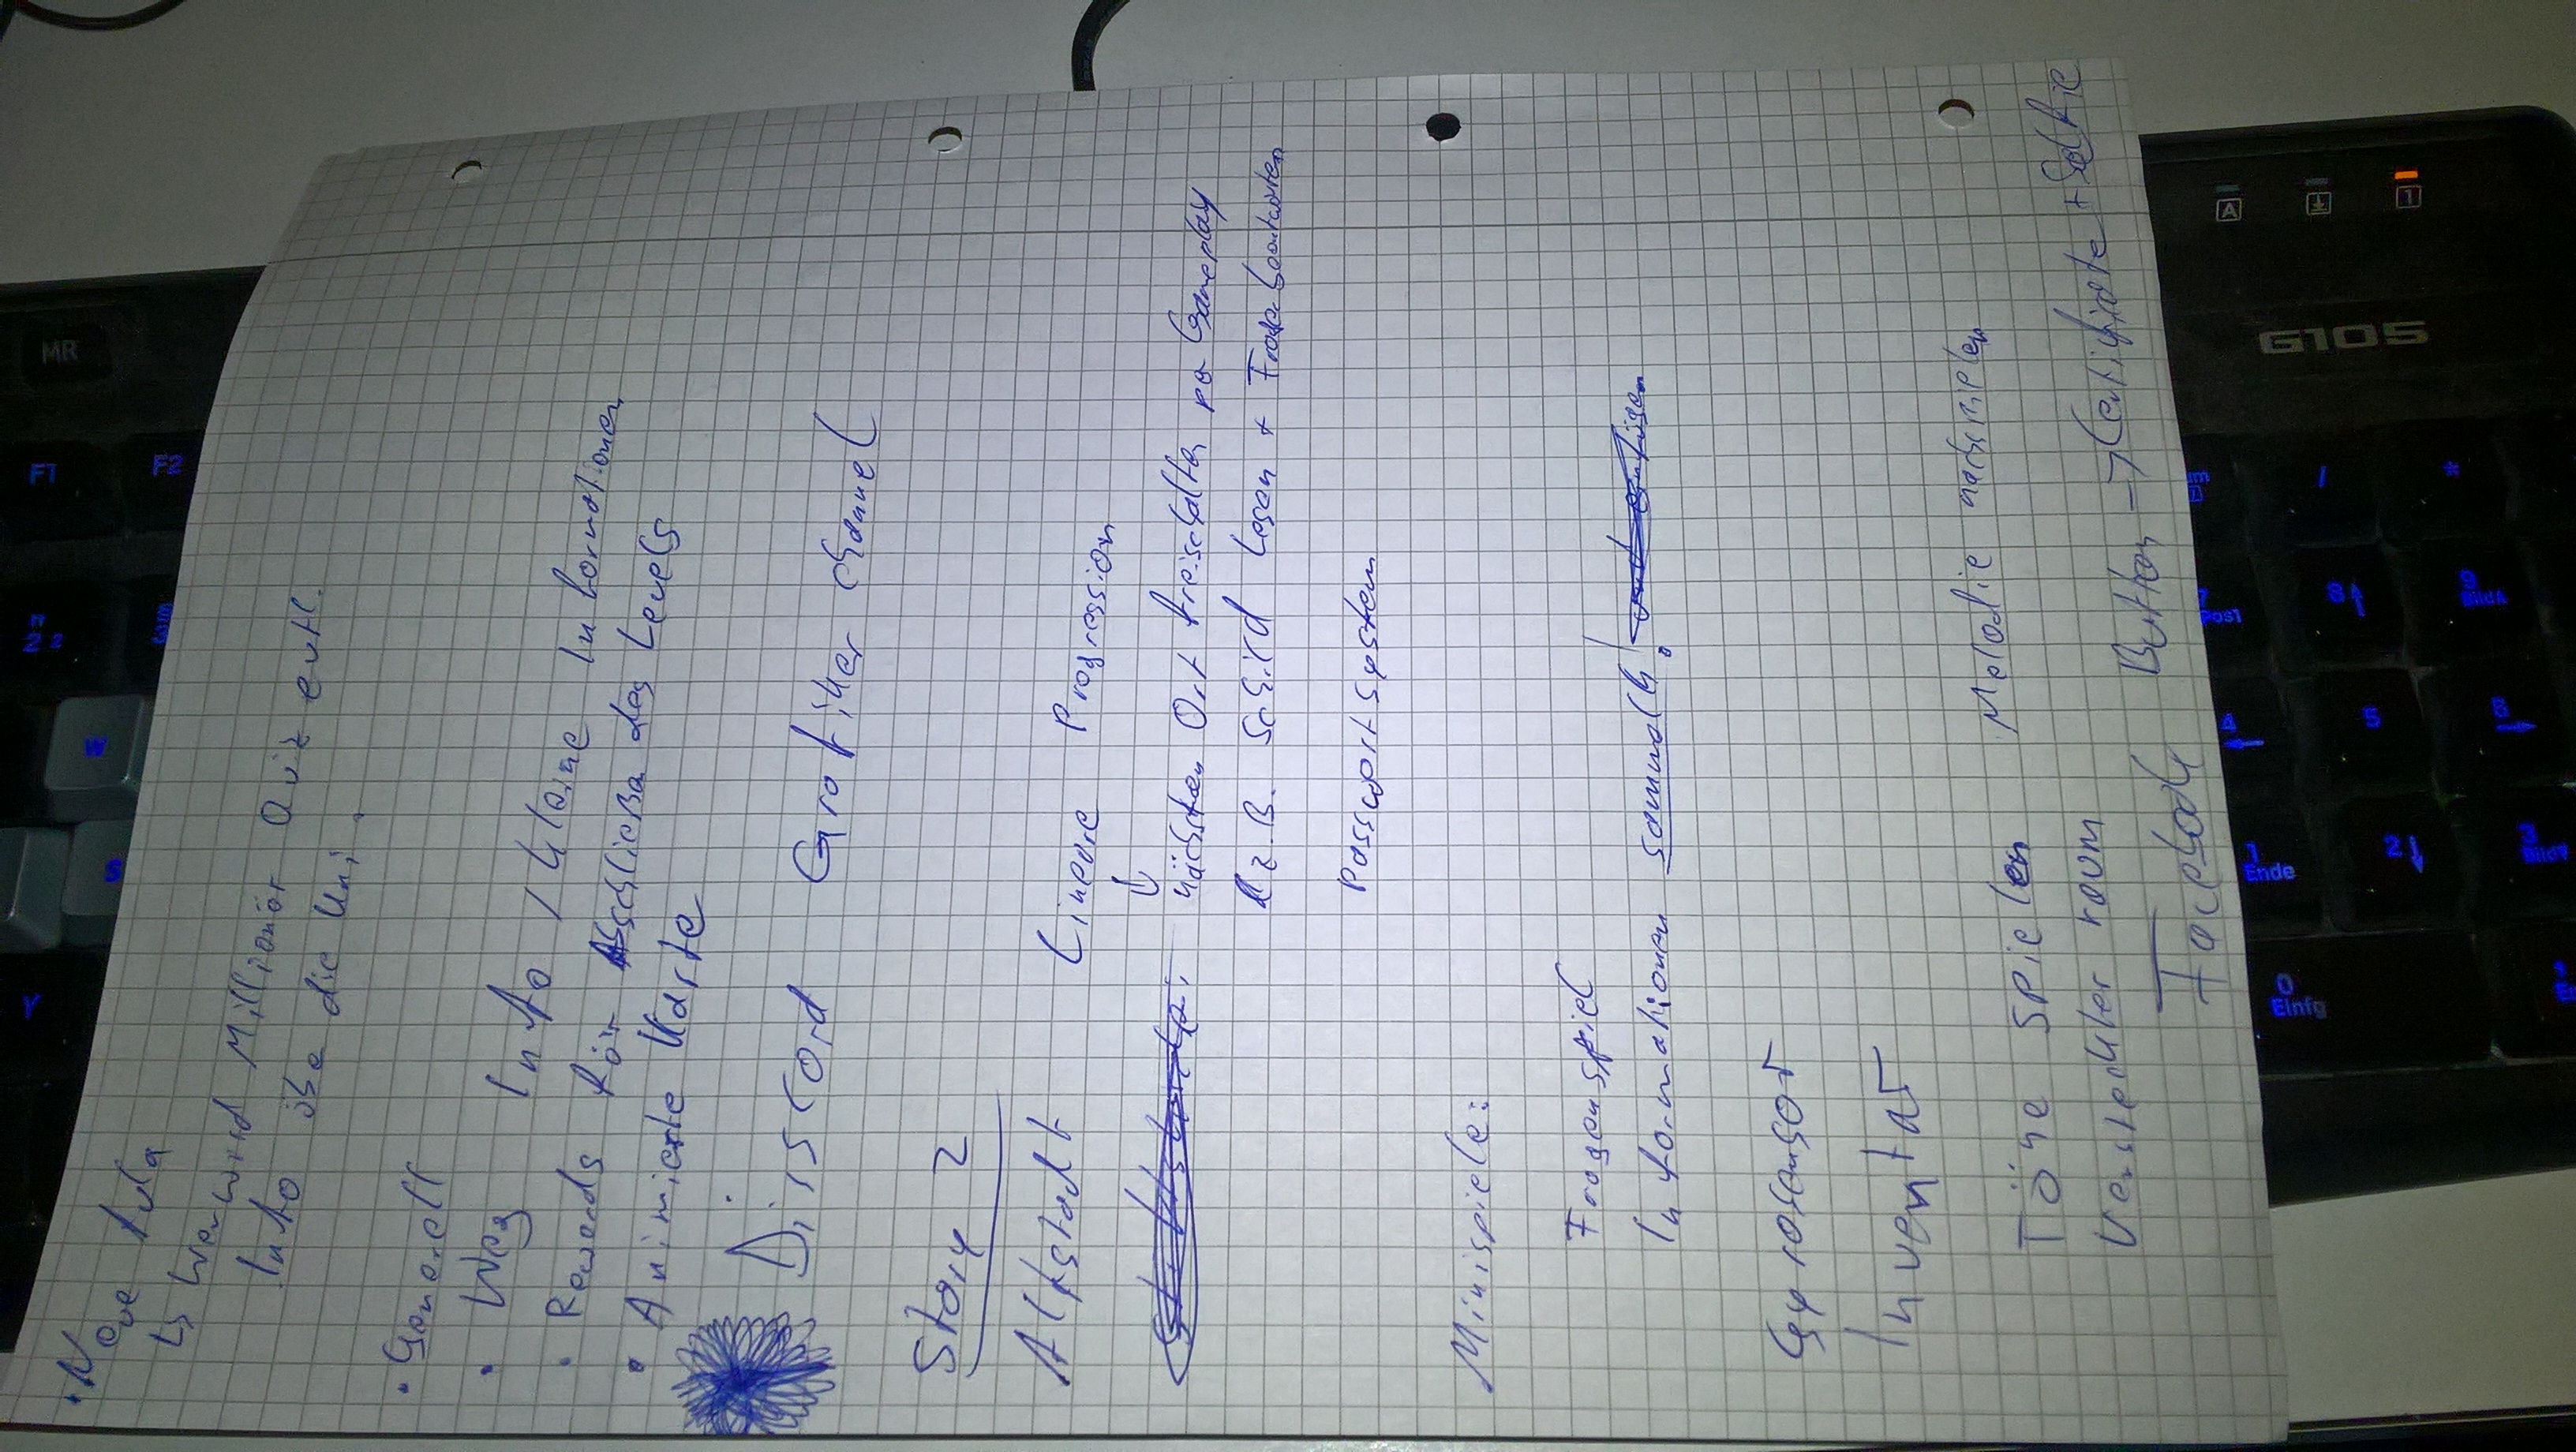 • Neue Aula
↳ Wer wird Millionär Quiz evtl.
Info über die Uni.
• Generell
• Weg Info / kleine Informationen
• Rewards für Abschließen des Levels
• Animierte Karte
Disscord Grafiker channel
Story 2
Altstadt Lineare Progression
↓
nächsten Ort freischalten per Gameplay
z.B. Schild lesen + Fragen beantworten
Passwortsystem
Minispiele:
Fragenspiel
Informationen sammeln! und einfügen
Gyrosensor
Inventar
Töne spielen Melodie nachspielen
Versteckter raum
Facebook Button → Certificate + Selfie
Y S W 2 3 F1 F2 MR
0 Einfg 1 Ende 2 ↓ 3 Bild 4 ← 5 6 → Pos1 8 ↑ 9 Bild / *
A 1
G105